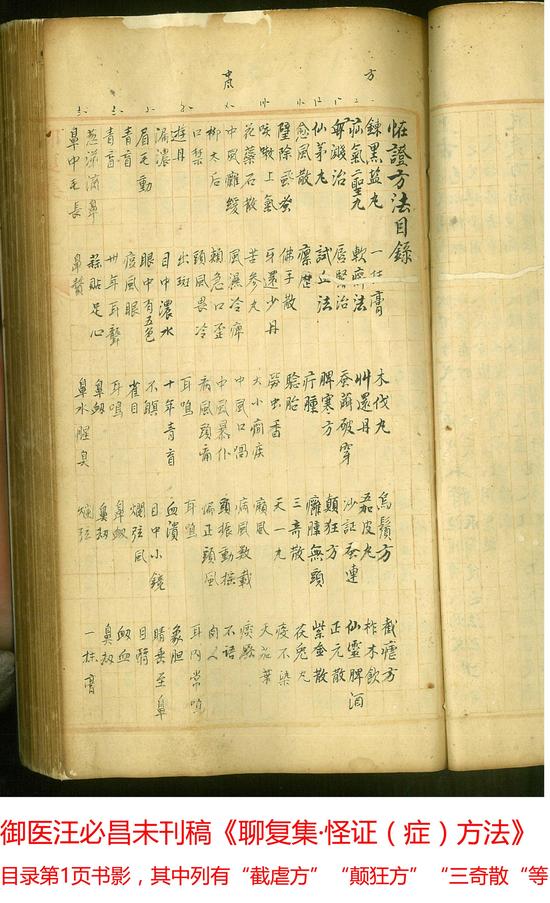 方
怪證方法目錄
鍊黑盐丸 一仕膏 木伐丸 烏鬚方 截瘧方
疝氣二聖丸 軟疥法 艸還丹 五加皮丸 柞木飲
唇緊治 破穿 沙証 仙靈脾酒
仙茅丸 試 法 脾寒方 顛狂方 正元散
愈風散 瘰癧 疔腫 癰腫無頭 紫金散
壁除 佛手散 驗胎 三奇散 茯兔丸
咳嗽上氣 牙還少丹 勞虫香 天一丸 疫不染
花藥石散 苦參丸 大小癇疾 癲風 天花
中風癱緩 風濕冷痺 中風口喎 風数載 痰厥
柳木后 頰急口歪 中風暴仆 頭振動搖 不語
口禁 頭風畏冷 風頭痛 偏正頭風
遊丹 出斑 耳鳴 耳鳴 耳内常鳴
漏濃 目中濃水 十年青盲 血潰 象胆
眉毛動 眼中有五色 不瞑 目中小鏡 睛垂至鼻
青盲 疫風眼 雀目 爛弦風 目翳
青盲 卅年耳聾 耳鳴 鼻衂 衂血
葱漿滴鼻 蒜貼足心 鼻衂 鼻衂 鼻衂
鼻中毛長 鼻贅 鼻水腥臭 爛弦 一抹膏
御医汪必昌未刊稿《聊复集·怪证（症）方法》
目录第1页书影，其中列有“截虐方”“颠狂方”“三奇散“等